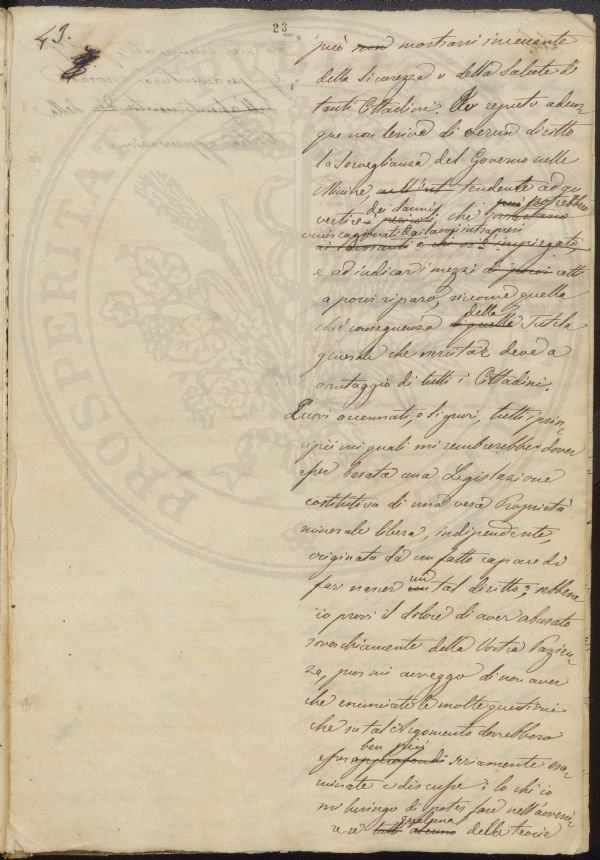 49.
23
può non mostrarsi incurante
della sicurezza o della salute di
tanti Cittadini. Io reputo adun-
que non lesiva di verun diritto
la Sorveglianza del Governo sulle
Miniere, tendente ad av
vertire i dei danni che potrebbero
venir cagionati dai lavori intrapresi
ai lavoranti o impiegato,
e ad indicar i mezzi atti
a porvi riparo, siccome quella
ch'è conseguenza della Tutela
generale che
vantaggio di tutti i Cittadini.
Eccovi accennati, o Signori, tutti i prin-
cipii sui quali mi sembrerebbe dover
esser basata una Legislazione
costitutiva di una vera Proprietà
minerale libera, indipendente
originata da un fatto capace di
far nascer un tal diritto; sebbene
io provi il dolore di aver abusato
soverchiamente della Vostra Pazien-
za, pur mi avveggo di non aver
che enunciate le molte questioni
che su tal Argomento dovrebbero
esser ben più seriamente esa-
minate e discusse: lo che io
mi lusingo di poter fare nell'avveni-
re se tutte alcuno qualcuna delle teorie
PROSPERITATI PUBLICAE